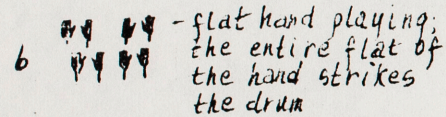 - flat hand playing;
the entire flat of
6 the hand strikes
the drum